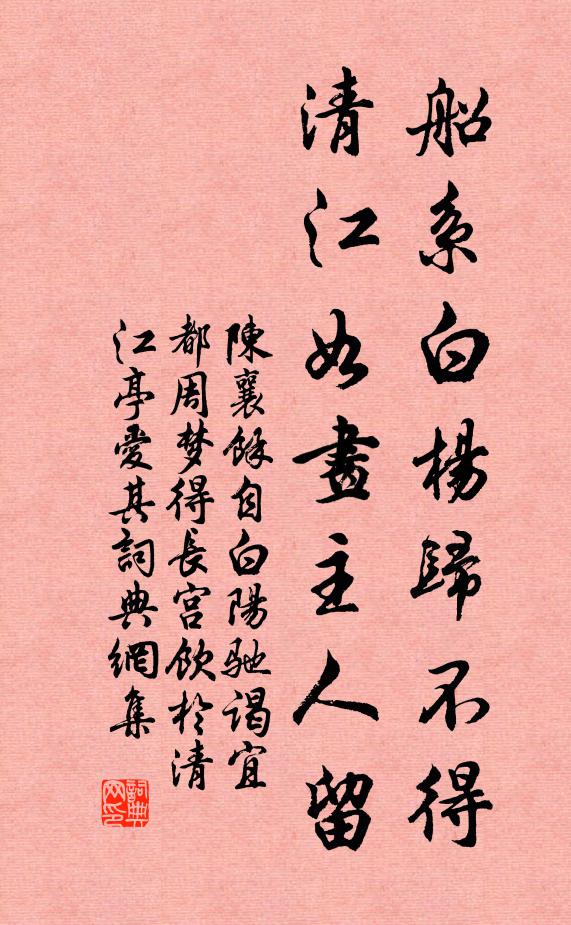 船系白楊歸不得
清江如畫主人留
陳襄餘自白陽馳謁宜
都周梦得長宫飲於清
江亭愛其詞典網集
詞典網印